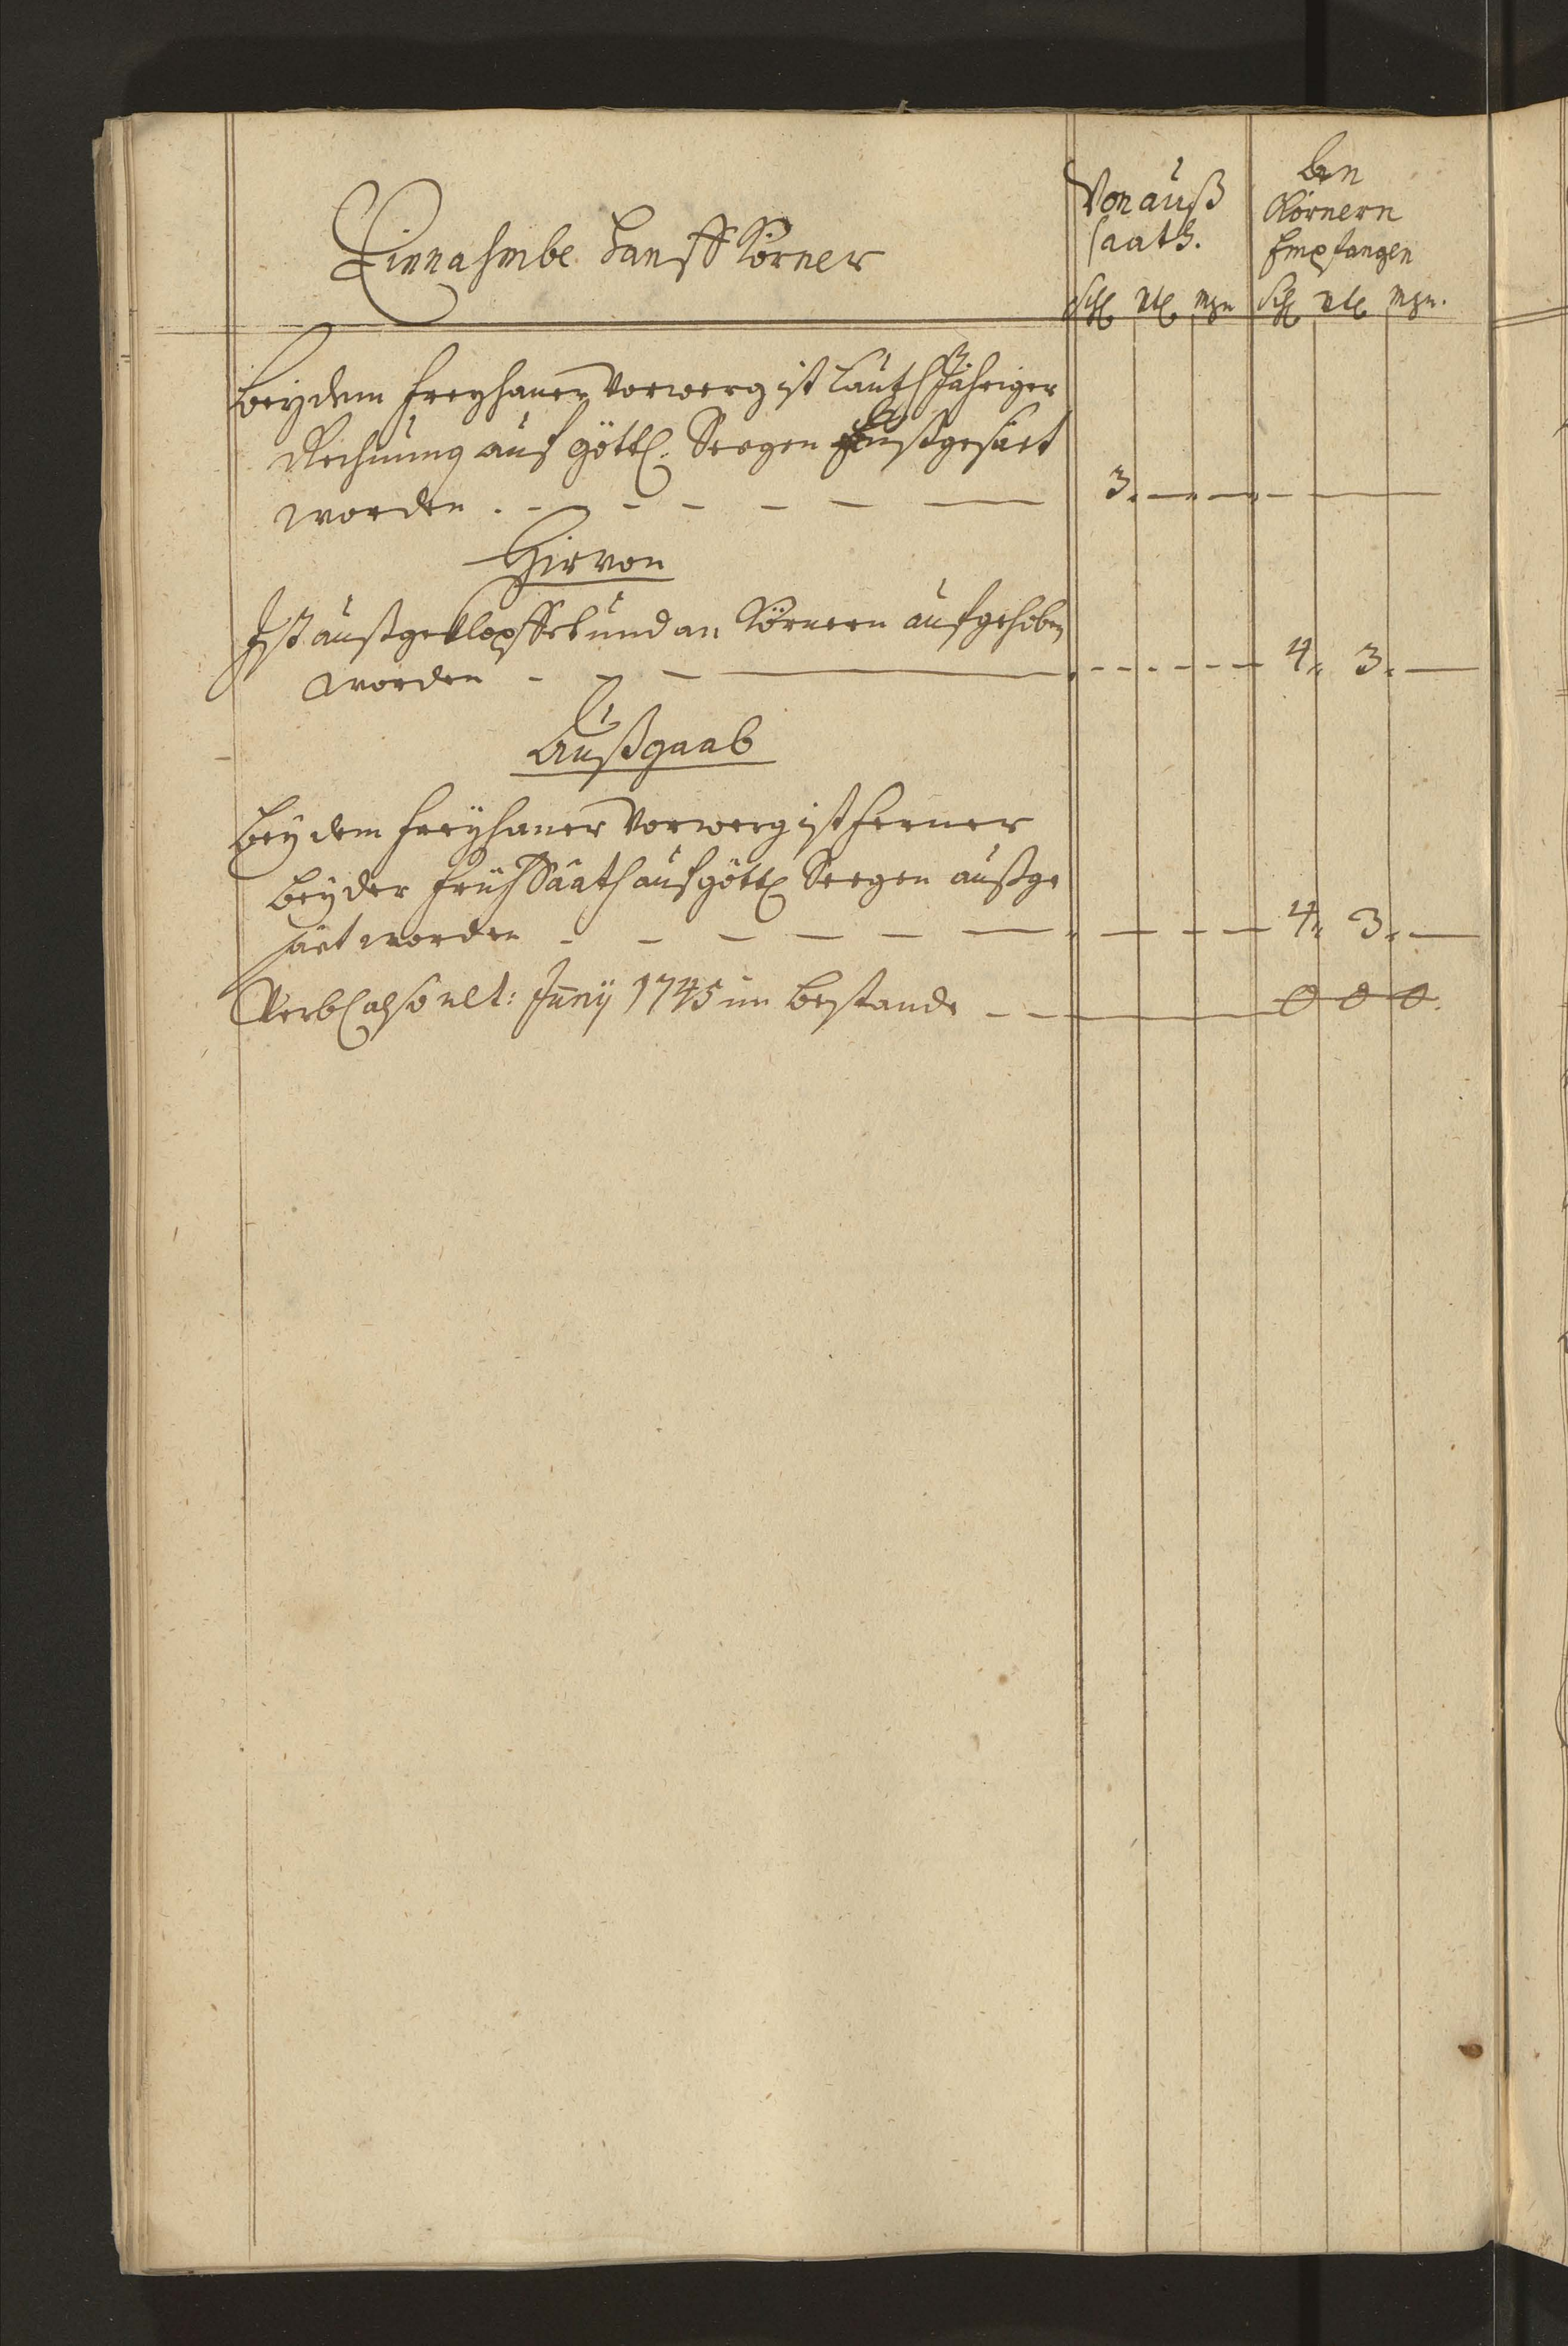 Einnahmbe Hanff Körner
Von auß
saath.
An
Körnern
Empfangen
Schl Vtl Mzn Schl Vtl Mzn.
Bey dem Freyhaner Vorwerg ist lauth Jähriger
Rechnung auf göttl. Seegen außgesäet
worden . - - - - - — — 3. — — — —
Hirvon
Ist außgeklopffet und an Körnern aufgehoben
worden - - - — 4. 3. —
Außgaab
Bey dem Freyhaner Vorwerg ist ferner
bey der Früh Saath auf göttl Seegen außge
säet worden - - - - - — — 4. 3. —
Verbl also ult: Junÿ 1745 im Bestande - - — 0 0 0.